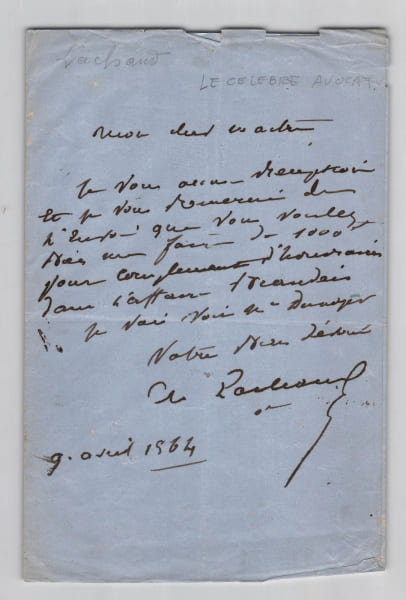 Lachaud
LE CELEBRE AVOCAT
Mon cher maître
Je vous accuse réception
Et je vous remercie de
l'Envoi que vous voulez
bien me faire de 1000 f
pour complement d'honoraires
dans l'affaire
Je vais voir Me
Votre bien dévoué
Ch Lachaud
9. avril 1864